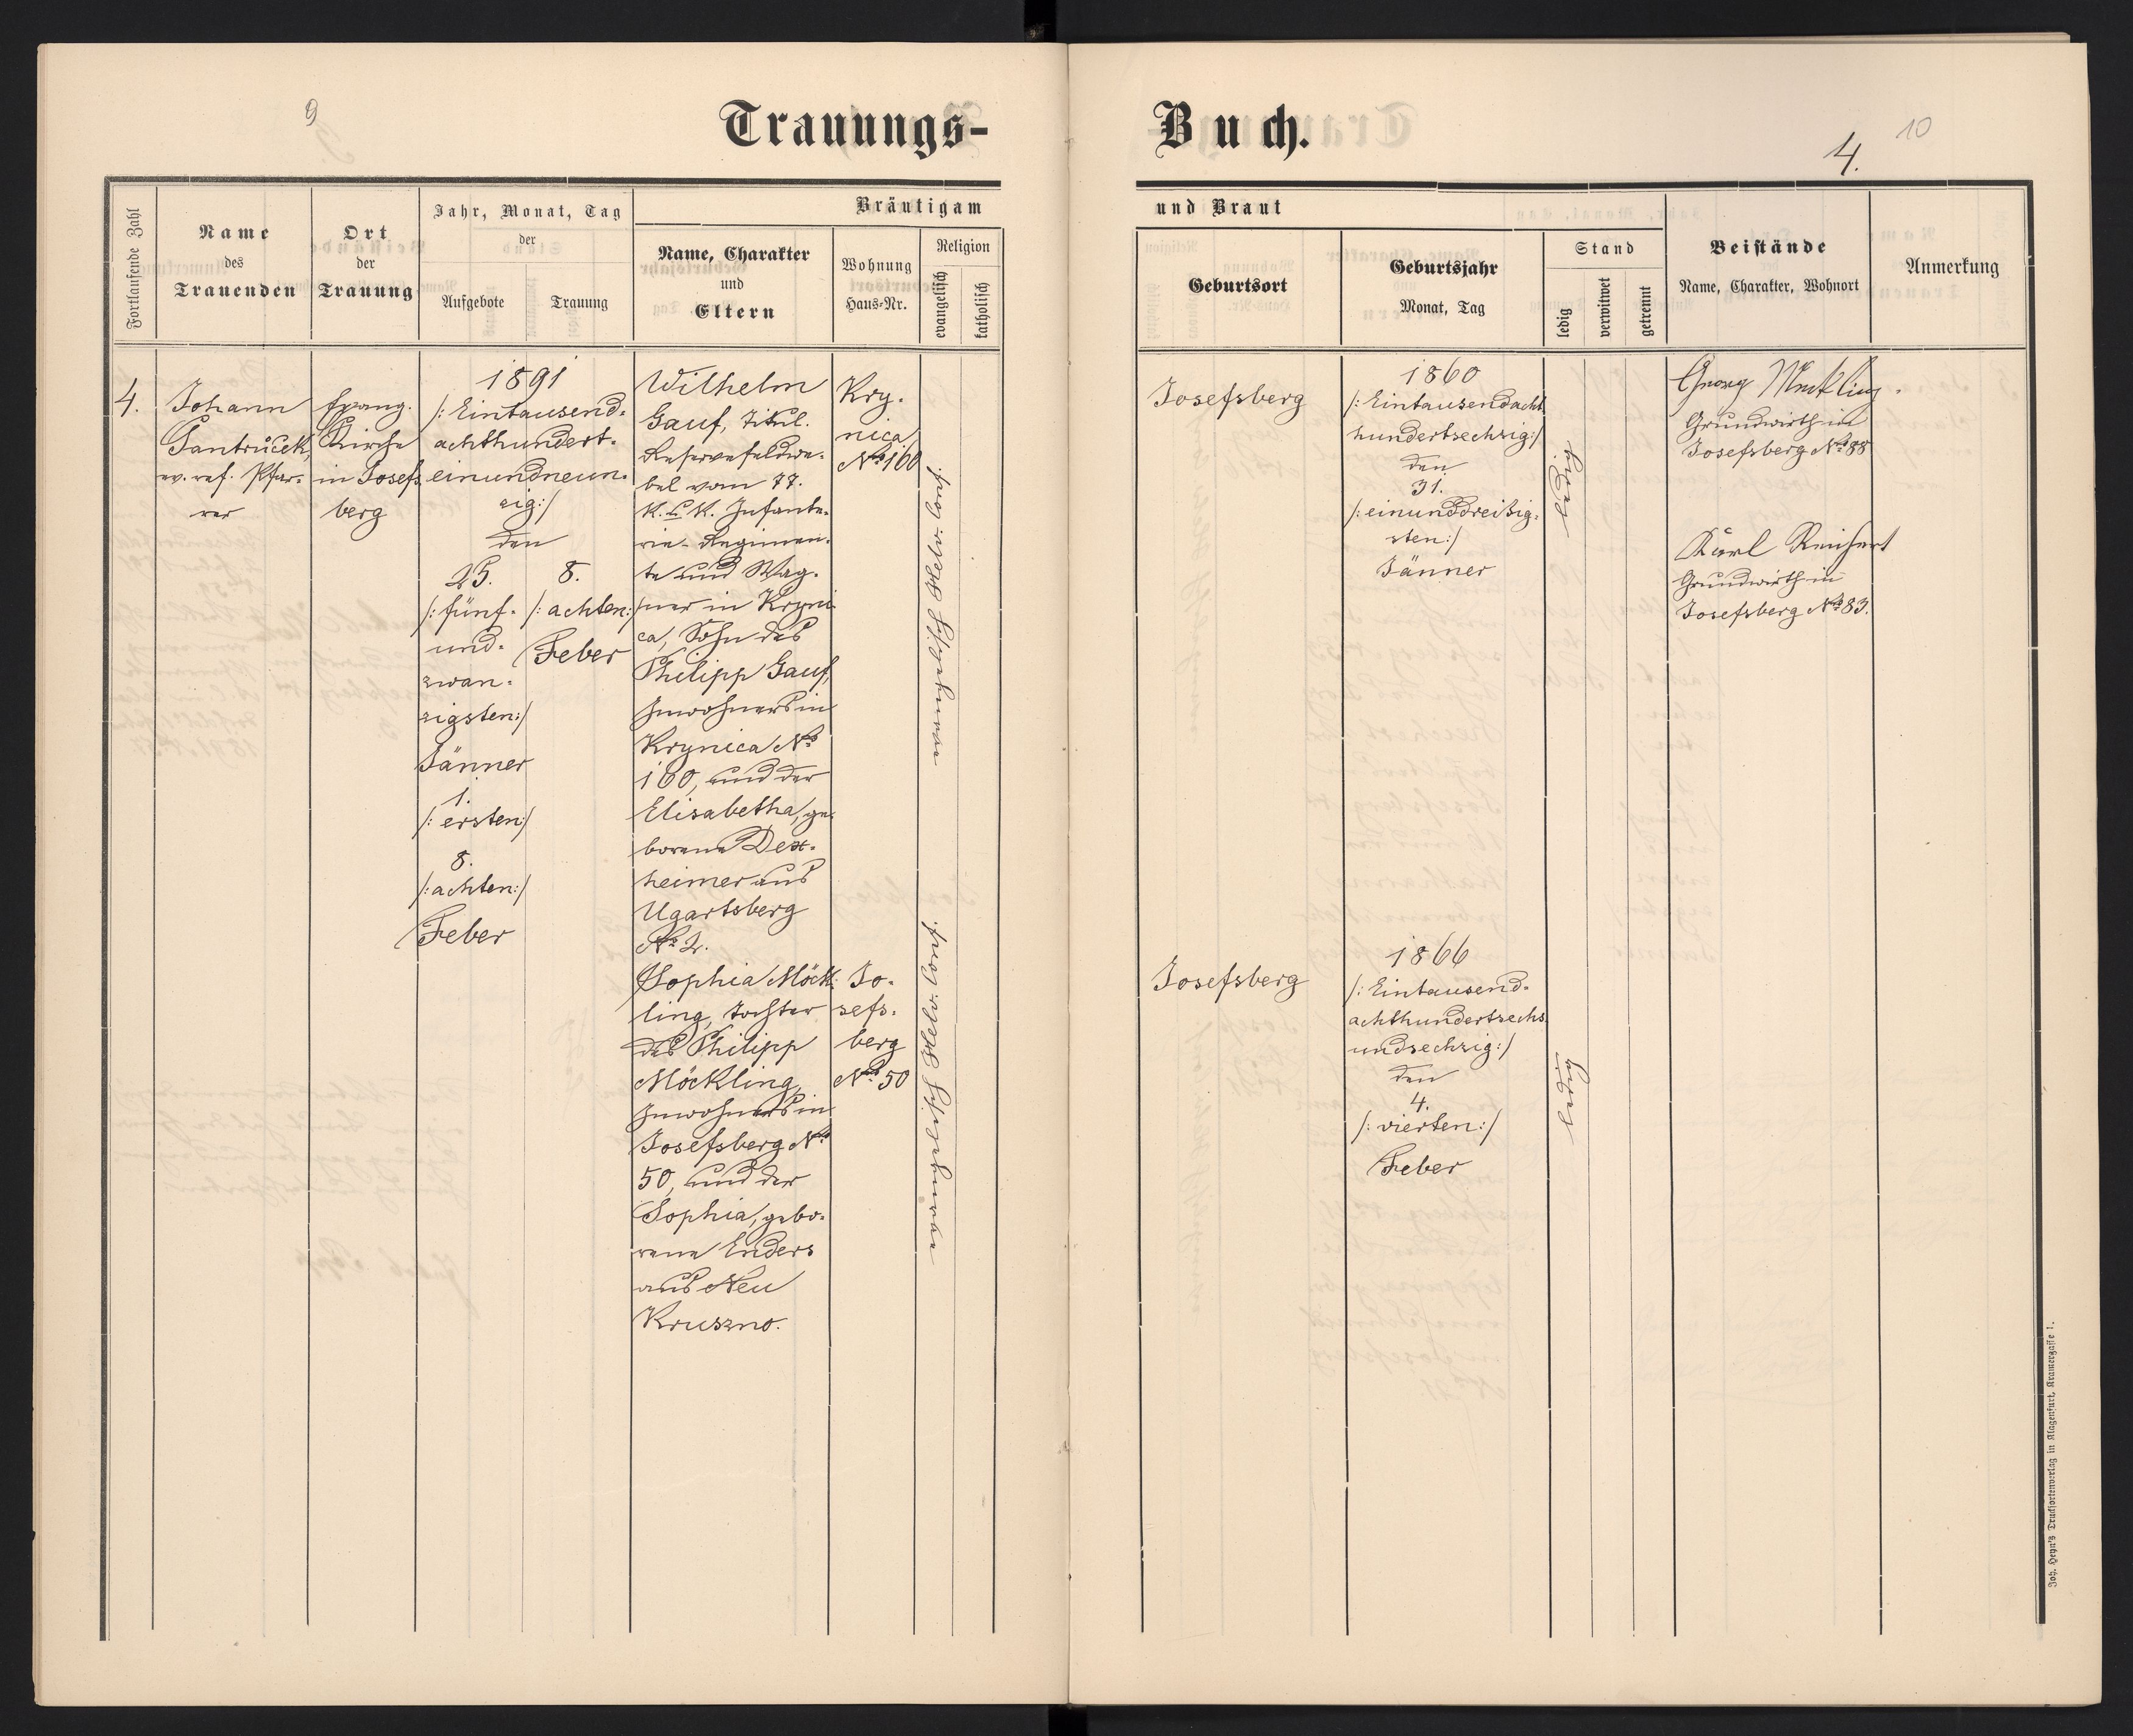 9
Trauungs-
Fortlaufende Zahl
Name
des
Trauenden
Ort
der
Trauung
Jahr, Monat, Tag
der
Aufgebote
Trauung
Bräutigam
Name, Charakter
und
Eltern
Wohnung
Haus-Nr.
Religion
evangelisch
katholisch
4.
Johann
Jantrůček,
ev. ref. Pfar-
rer
Evang.
Kirche
in Josefs
berg
1891
/: Eintausend-
achthundert-
einundneun-
zig :/
den
25.
/: fünf-
und-
zwan-
zigsten :/
Jänner
1.
/: ersten :/
8.
/: achten :/
Feber
8.
/: achten :/
Feber
Wilhelm
Gauf, Titul.
Reservefeldwe-
bel vom 77.
K. u. K. Infante-
rie-Regimen-
te und Wag-
ner in Kryni
ca, Sohn des
Philipp Gauf,
Inwohners in
Krynica No
160, und der
Elisabetha, ge-
borene Dex-
heimer aus
Ugartsberg
No 2.
Kry-
nica
No 160
evangelisch Helv. Conf.
Sophia Möck-
ling, Tochter
des Philipp
Möckling,
Inwohners in
Josefsberg No
50, und der
Sophia, gebo-
rene Enders
aus Neu
Kruszno.
Jo-
sefs-
berg
No 50
evangelisch Helv. Conf.
Buch.
10
4.
und Braut
Geburtsort
Geburtsjahr
Monat, Tag
Stand
ledig
verwitwet
getrennt
Beistände
Name, Charakter, Wohnort
Anmerkung
Josefsberg
1860
/: Eintausendacht
hundertsechzig :/
den
31.
/: einunddreisig-
sten :/
Jänner
ledig
Georg
Grundwirth in
Josefsberg No 88
Karl Reichert
Grundwirth in
Josefsberg No 83.
Josefsberg
1866
/: Eintausend-
achthundertsechs
undsechzig :/
den
4.
/: vierten :/
Feber
ledig
Joh. Heyn's Drucksortenverlag in Klagenfurt, Kramergasse 1.